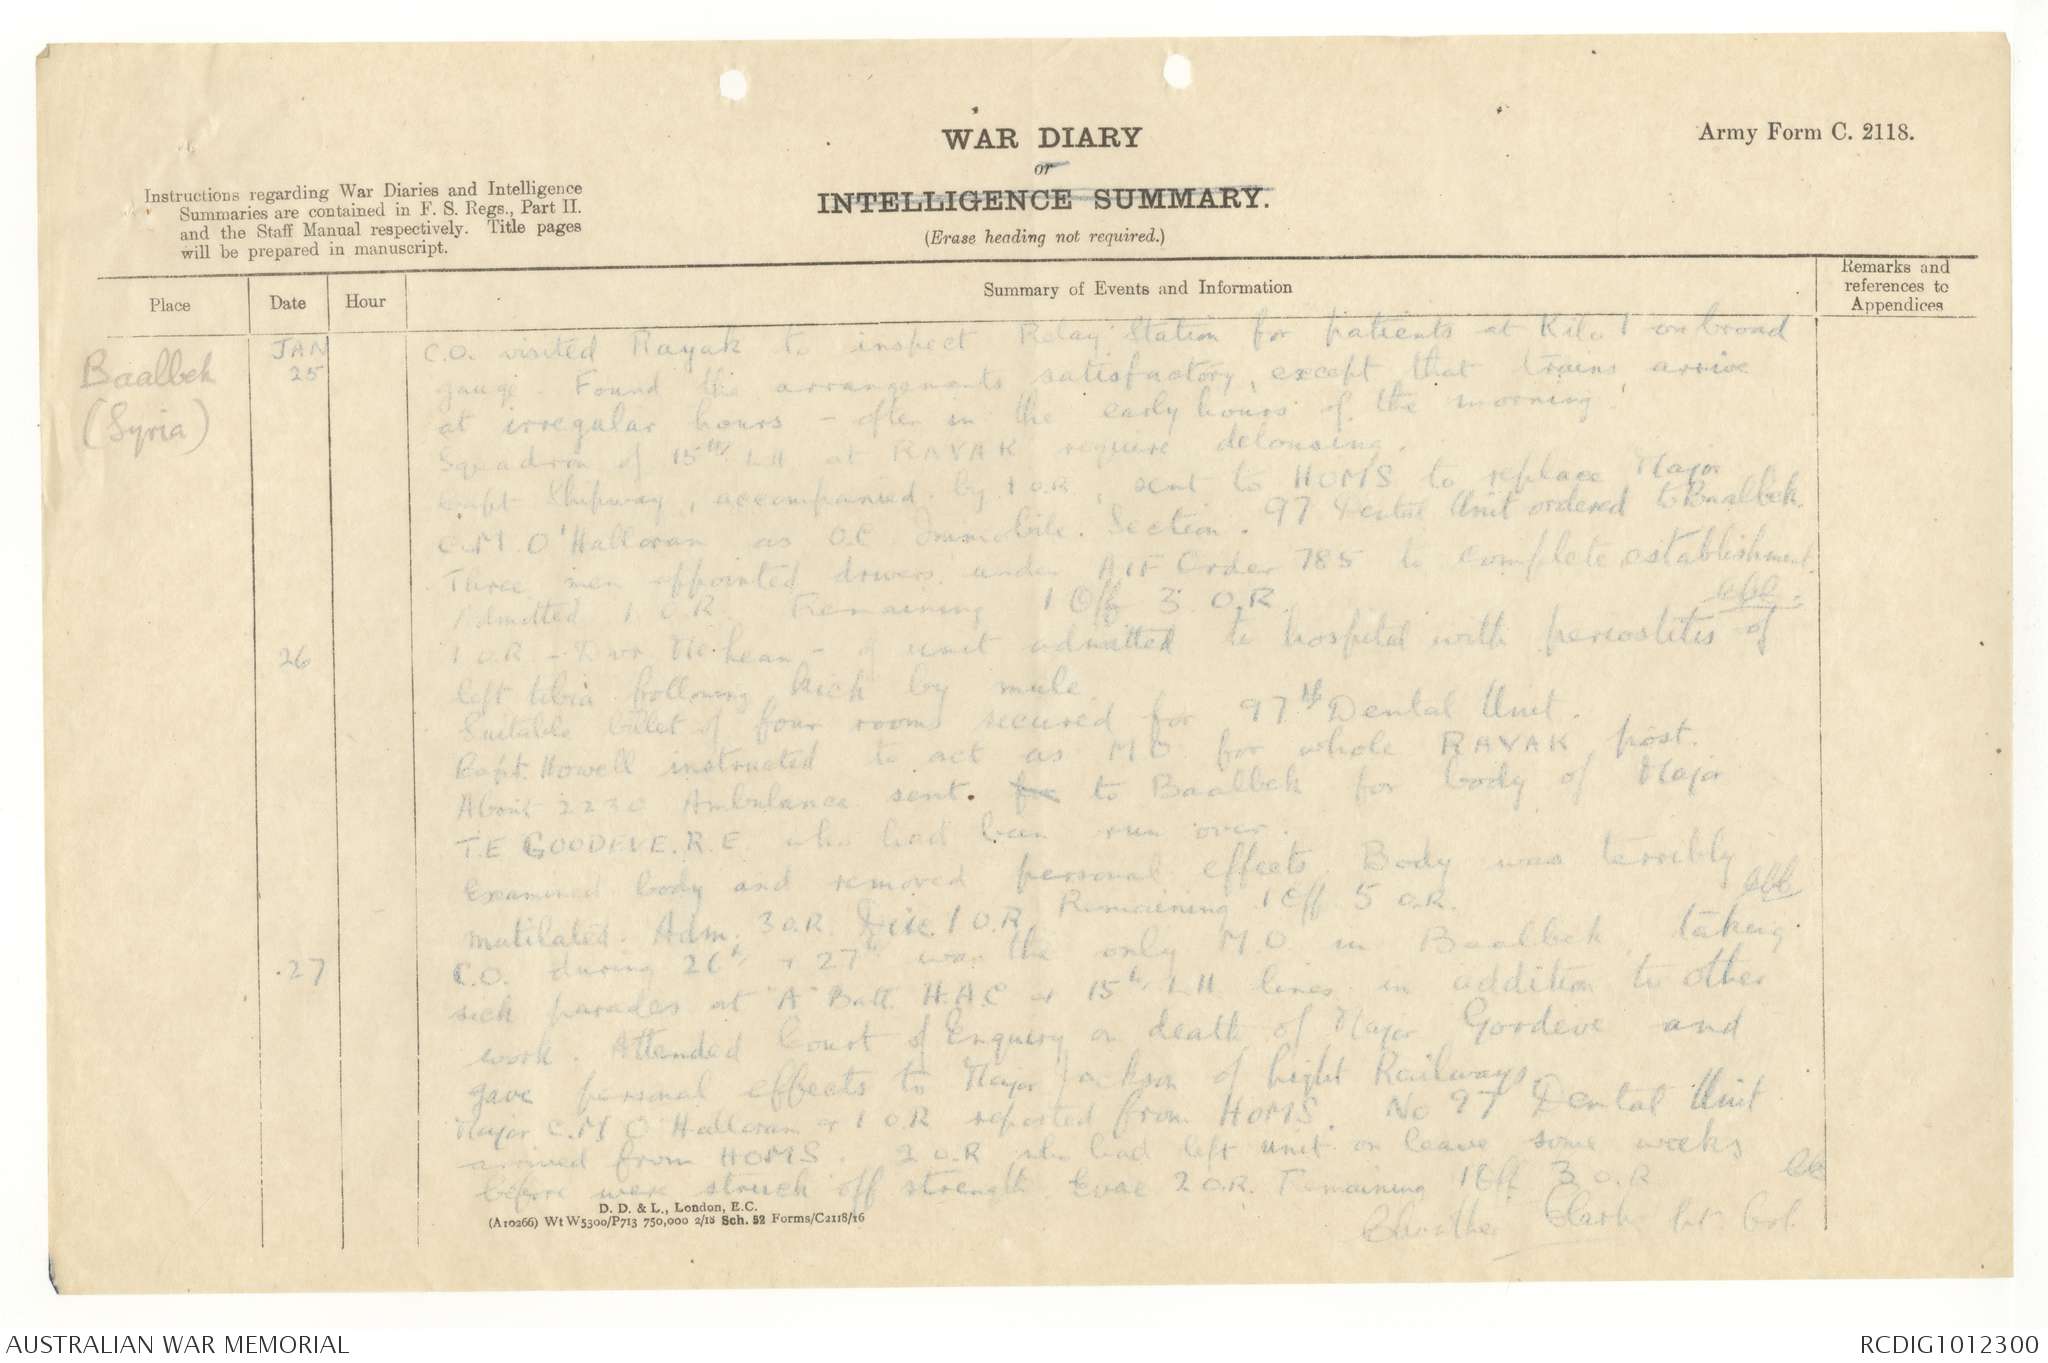 WAR DIARY
or
INTELLIGENCE SUMMARY.
(Erase heading not required.)
Army Form C. 2118.
Instructions regarding War Diaries and Intelligence
Summaries are contained in F. S. Regs., Part II.
and the Staff Manual respectively. Title pages
will be prepared in manuscript.
Place
Date
Hour
Summary of Events and Information
Remarks and
references to
Appendices
Baalbek
(Syria)
JAN
25
C.O. visited Rayak to inspect Relay Station for patients at Kilo 1 on broad
gauge. Found the arrangements satisfactory, except that trains arrive
at irregular hours - often in the early hours of the morning.
Squadron of 15th L.H at RAYAK require delousing.
Capt Shipway, accompanied by 1 O.R, sent to HOMS to replace Major
C.M. O'Halloran as O.C Immobile Section. 97 Dental Unit ordered to Baalbek.
Three men appointed drivers under AIF Order 785 to complete establishment.
Admitted 1 O.R. Remaining 1 Off 3 O.R.
26
1 O.R. - Dvr - of unit admitted to hospital with periostitis of
left tibia following kick by mule.
Suitable billet of four rooms secured for 97th Dental Unit.
Capt. Howell instructed to act as M O for whole RAYAK post.
About 2230 Ambulance sent for to Baalbek for body of Major
T.E GOODEVE. R.E. who had been run over.
Examined body and removed personal effects. Body was terribly
mutilated. Adm. 3 O.R. Disc. 1 O.R. Remaining 1 Off 5 O.R.
27
C.O. during 26th + 27th was the only M.O. in Baalbek, taking
sick parades at "A" Batt. H.A.C + 15th L.H. lines in addition to other
work. Attended Court of Enquiry on death of Major Goodeve and
gave personal effects to Major Jackson of Light Railways.
Major C.M O'Halloran + 1 O.R reported from HOMS. No 97 Dental Unit
arrived from HOMS. 2 O.R who had left unit on leave some weeks
before were struck off strength Evac 2 O.R. Remaining 1 Off 3 O.R
Clark Lt Col
D. D. & L., London, E.C.
(A10266) Wt W5300/P713 750,000 2/18 Sch. 52 Forms/C2118/16
AUSTRALIAN WAR MEMORIAL
RCDIG1012300